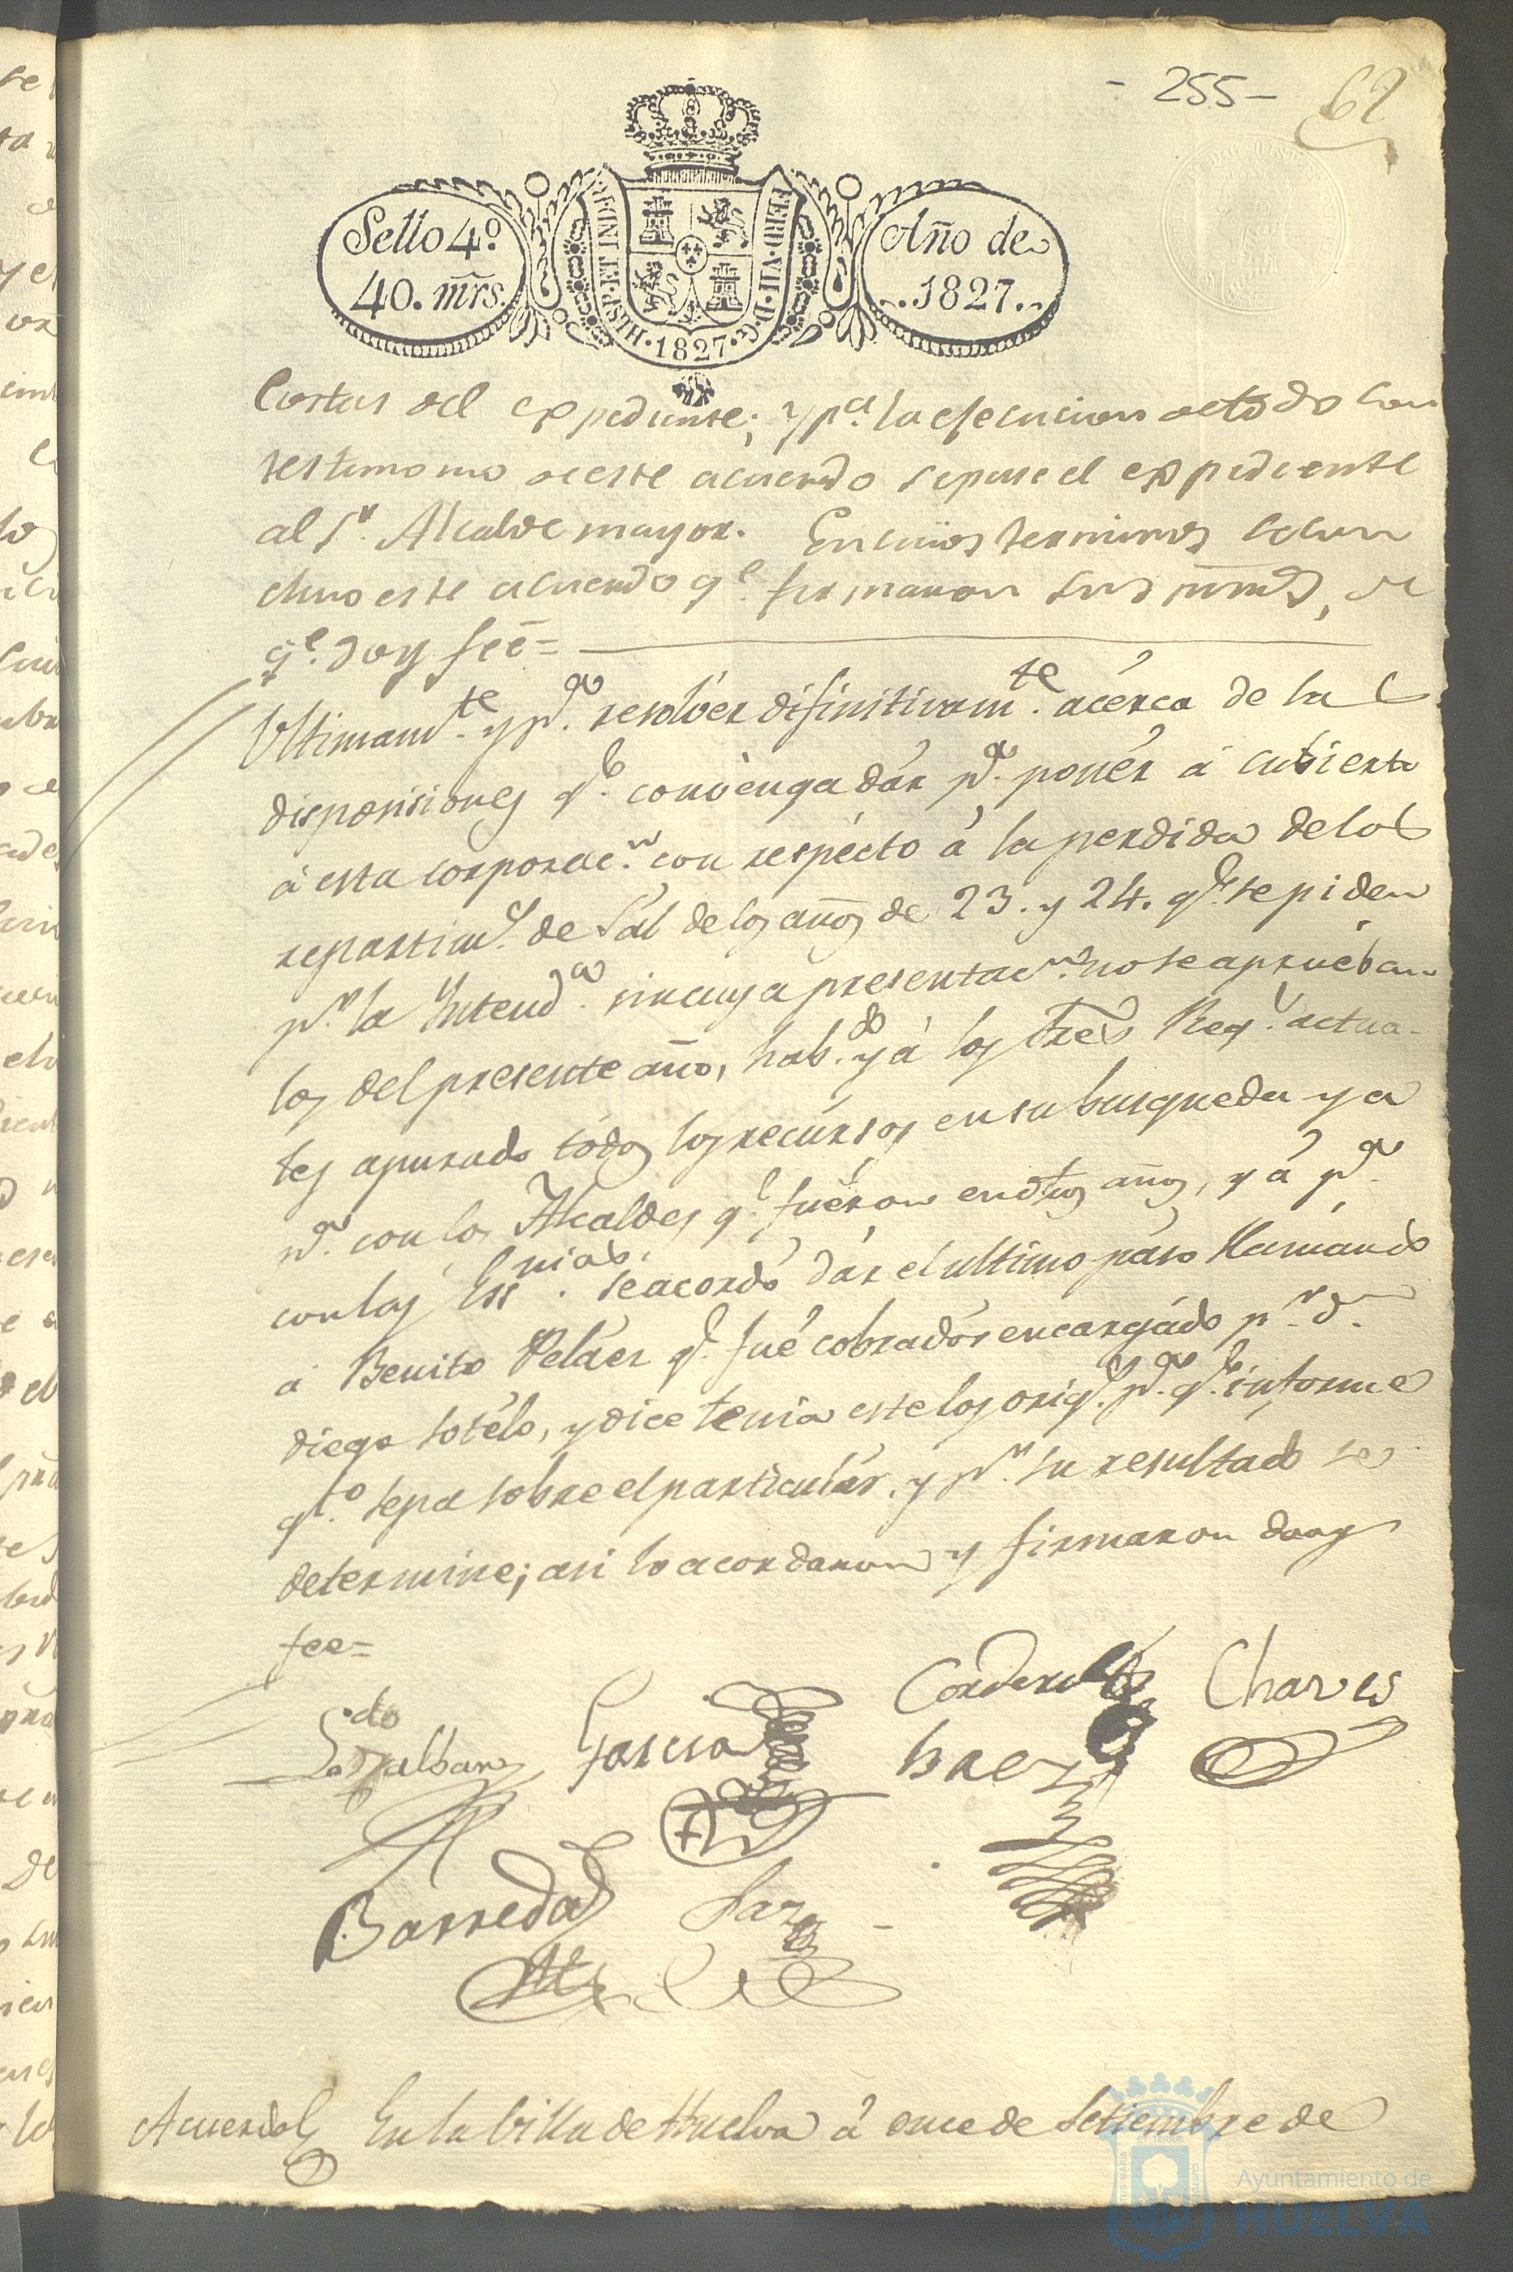 - 255 -
62
Sello 4º
40. mrs.
HISP. ET IND. R.
FERD. VII. D. G.
1827
Año de
1827.
Costas del expediente; y pª. la ejecucion de todo con
testimonio de este acuerdo se pase el expediente
al Sr. Alcalde mayor. En cuios terminos
este acuerdo qe. firmaron sus mrds, de
qe. doy feé=
Ultimamte. y pa. resolver difinitivamte. acérca de la
disposisiones qe. convenga dár pa. ponér á cubierto
á esta corporacn. con respécto á la perdida de los
repartims. de Sal de los años de 23. y 24. qe. se piden
pr. la Yntenda. sin cuya presentacn. no se aprueban
los del presente año, habdo. yá los tres Regs. actua-
les apurado tódos los recúrsos en su busqueda ya
pa. con los Alcaldes qe. fuéron en dhos años, y á pa.
con los Essnias. se acordó dár el ultimo páso llamándo
a Benito Peláes qe. fué cobradór encargádo pr. Dn.
diego sotélo, y dice tenia este los origs. pa. qe. informe
qto. sepa sobre el particulár. y pr. su resultádo se
determine; asi lo acordaron y firmaron doy
fee=
Lcdo
Garcia
Cordero
Chaves
Barreda
Paz
Acuerdo En la Villa de Huelva á once de Setiembre de
Ayuntamiento de
HUELVA